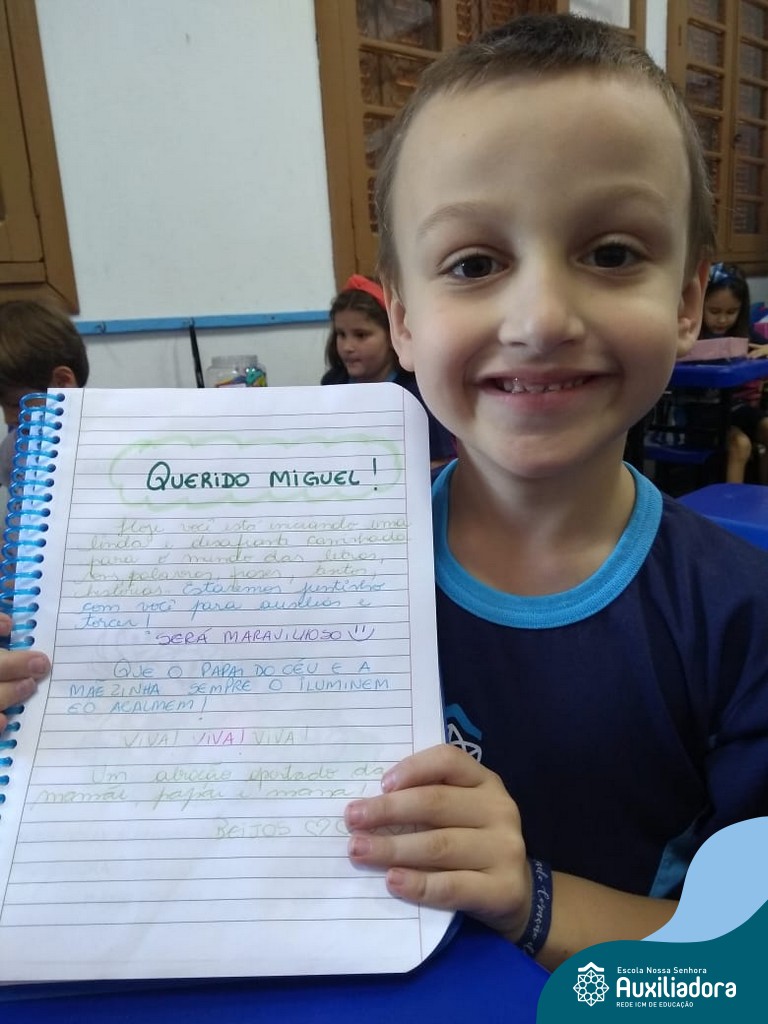 QUERIDO MIGUEL!
Hoje você está iniciando uma
linda e desafiante caminhada
para o mundo das letras,
palavras, frases, textos,
histórias. Estaremos juntinho
com você para auxiliar e
torcer!
"SERÁ MARAVILHOSO
QUE O PAPAI DO CÉU E A
MÃEZINHA SEMPRE O ILUMINEM
E O ACALMEM!
VIVA! VIVA! VIVA!
Um abração apertado da
mamãe, papai e mana!
BEIJOS
Escola Nossa Senhora
Auxiliadora
REDE ICM DE EDUCAÇÃO